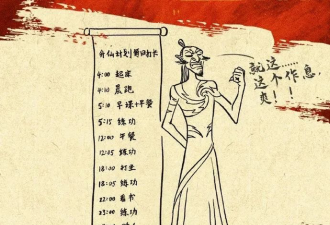 每日打卡
4:00 起床
4:10 晨跑
5:05 早课+早餐
5:15 练功
12:00 午餐
12:05 练功
18:00 打坐
18:05 练功
22:00 看书
23:00 练功
就这……
这个作息,
爽!!